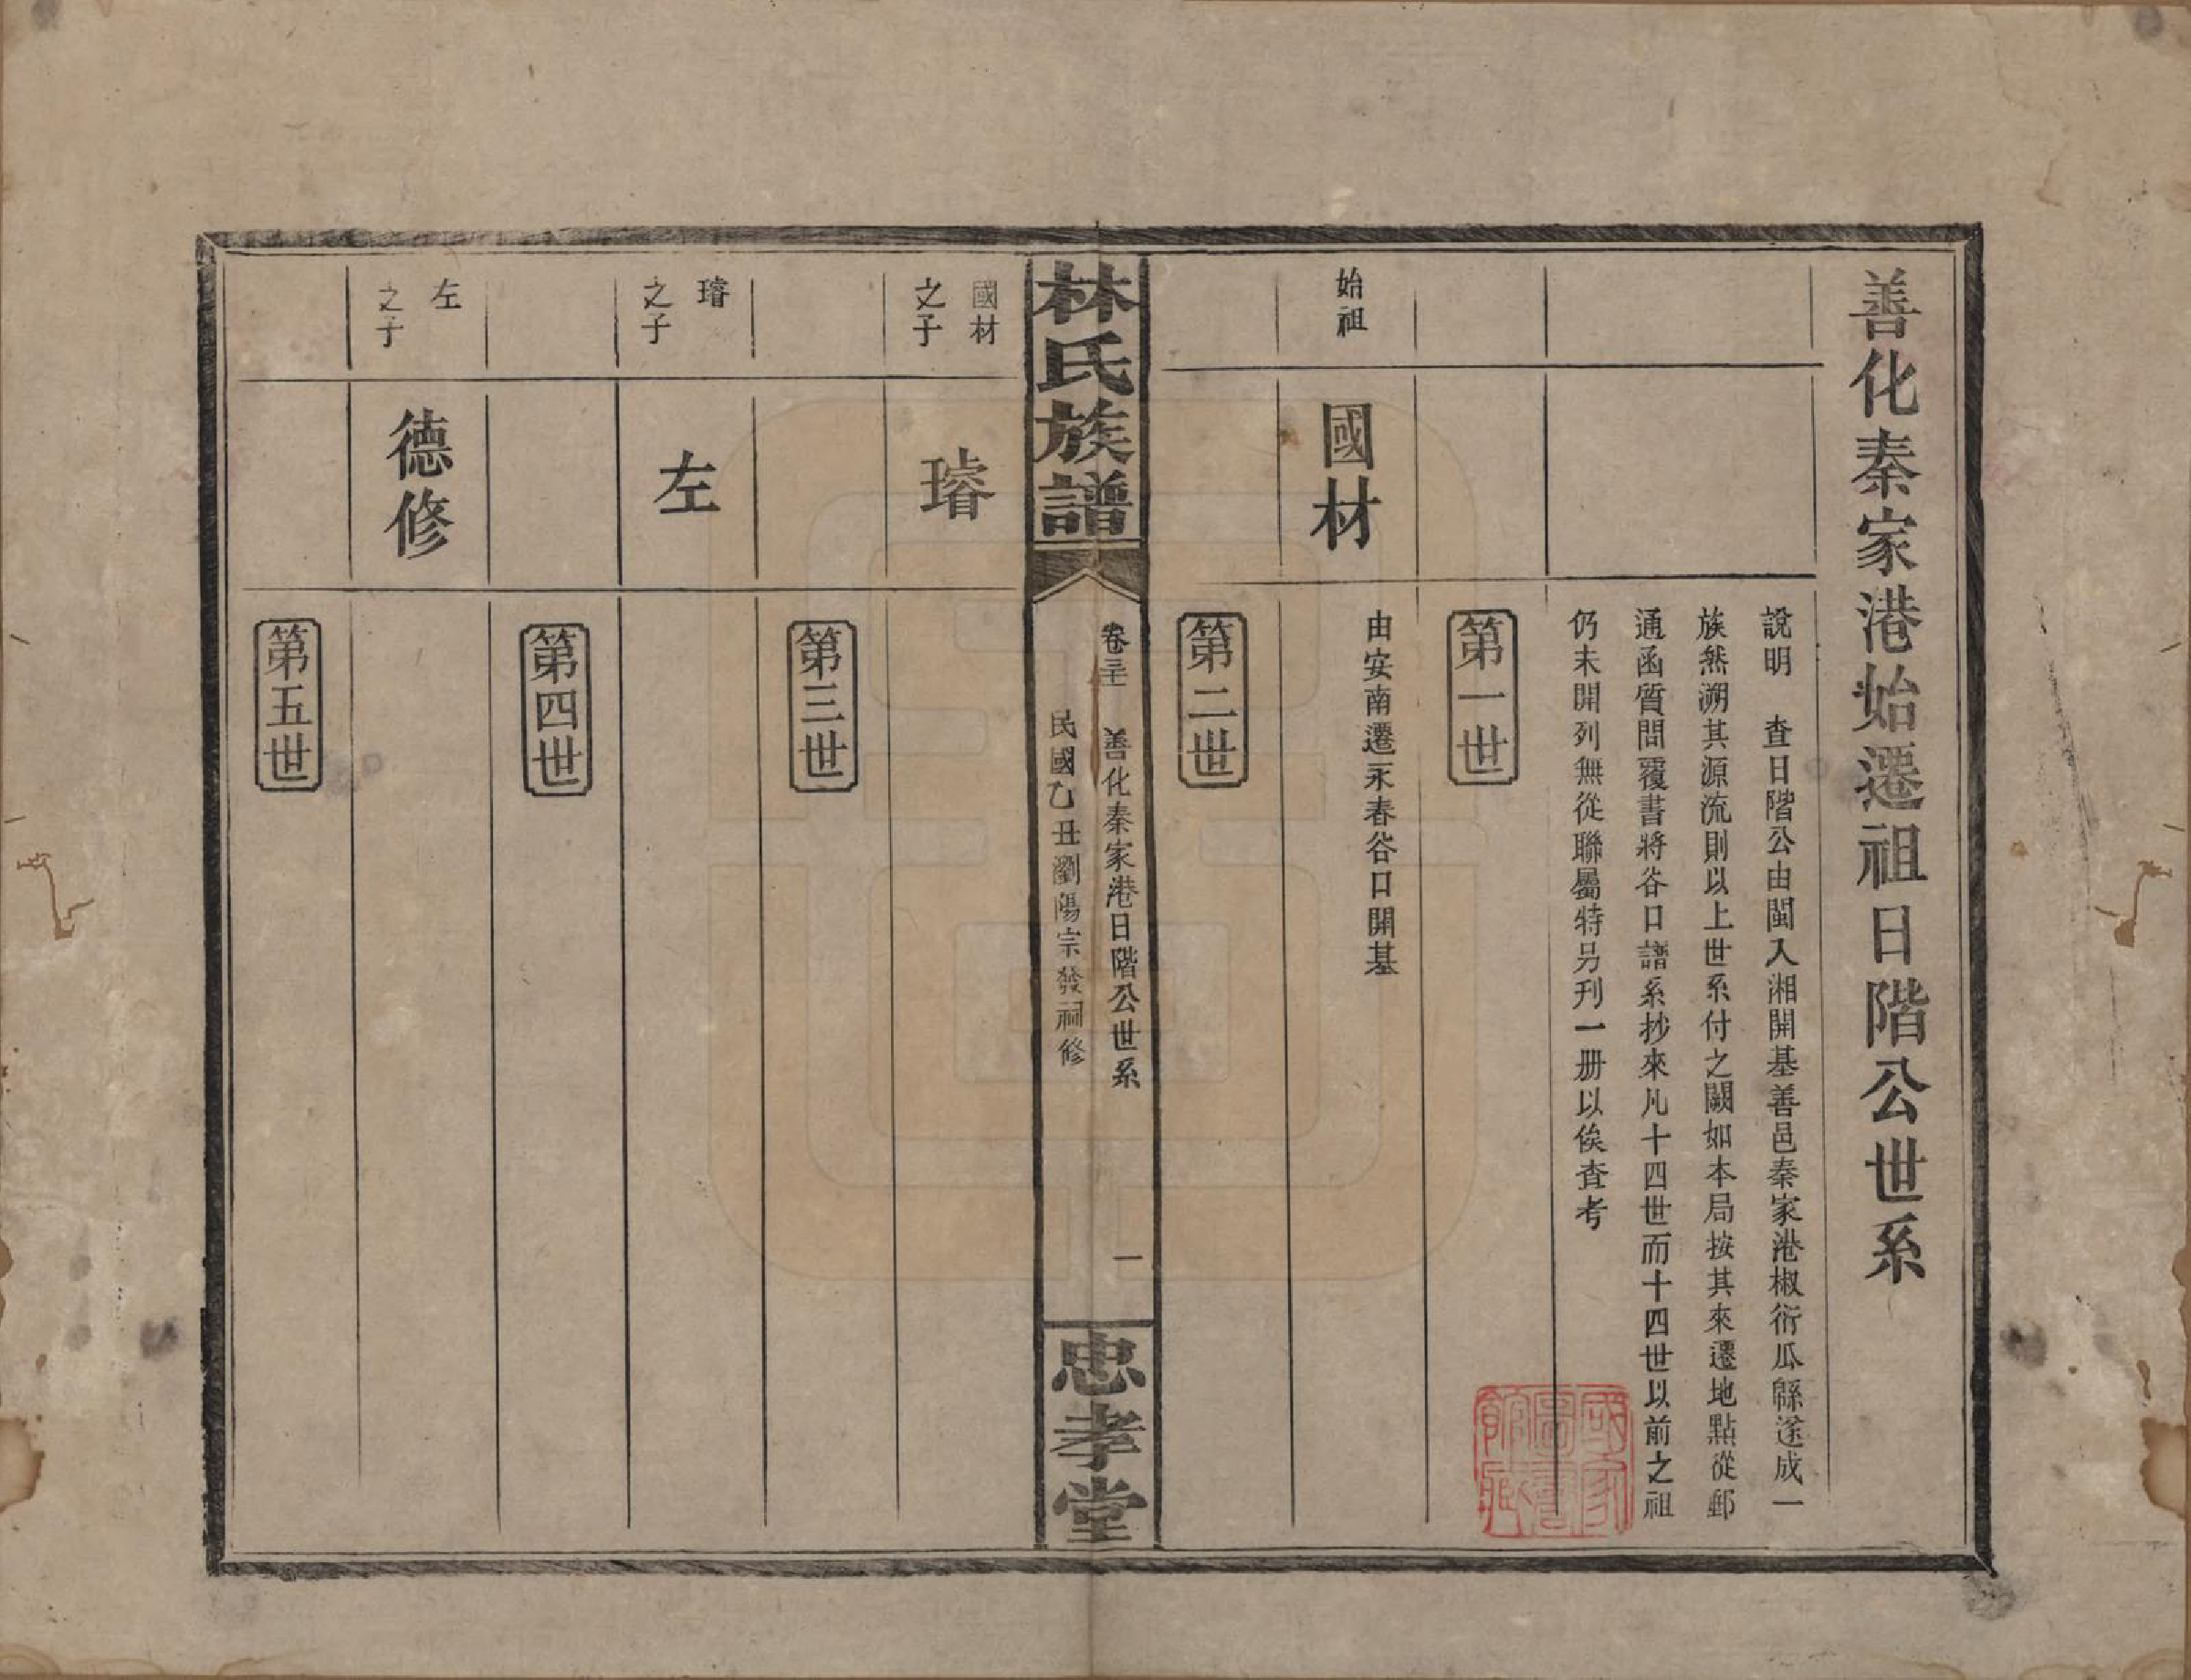 善化秦家港始遷祖日階公世系
說明　查日階公由閩入湘開基善邑秦家港椒衍瓜緜遂成一
族然溯其源流則以上世系付之闕如本局按其來遷地點從郵
通函質問覆書將谷口譜系抄來凡十四世而十四世以前之祖
仍未開列無從聯屬特另刊一册以俟查考
第一世
始祖
國材
由安南遷永春谷口開基
第二世
林氏族譜
善化秦家港日階公世系
一
民國乙丑瀏陽宗發祠修
忠孝堂
國材
之子
璿
第三世
璿
之子
左
第四世
左
之子
德修
第五世
國家
圖書
館藏